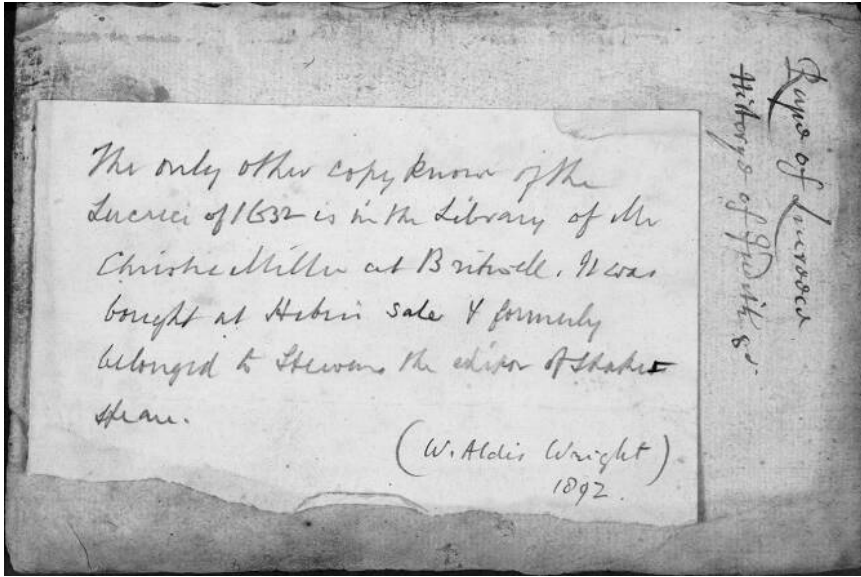 The only other copy known of the
Lucrece of 1632 is in the Library of Mr
Christie Miller at Britwell. It was
bought at Heber's sale & formerly
belonged to Steevens the editor of Shake-
speare.
(W. Aldis Wright)
1892.
Rape of Lucreece
History of Judith &c